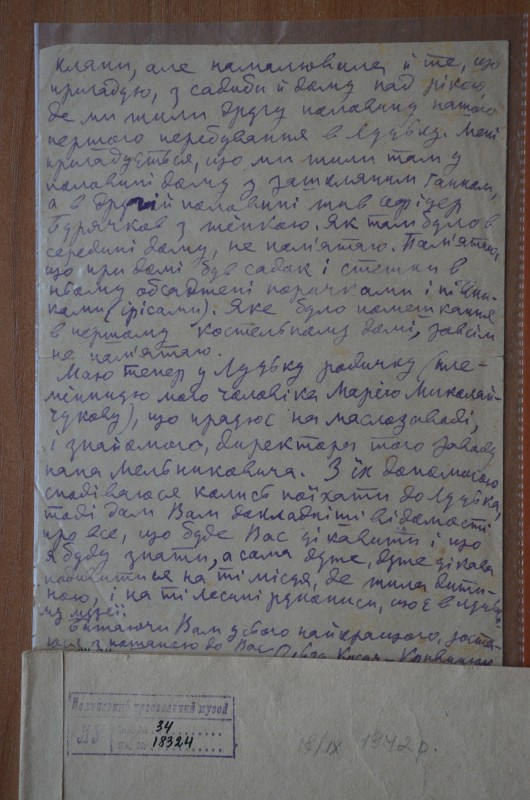 кляпи, але намалювила й те, що
пригадую, з садиби й дому над рікою,
де ми жили другу половину нашого
першого перебування в Луцьку. Мені
пригадується, що ми жили там у
половині дому з зашкляним ганком,
а в другій половині жив офіцер
Бурячков з жінкою. Як там було в
середині дому, не пам'ятаю. Пам'ятаю,
що при домі був садок і стежки в
ньому обсаджені поричками і півни-
ками (ірісами). Яке було помешкання
в першому костельному домі, зовсім
не пам'ятаю.
Маю тепер у Луцьку родичку (пле-
мінницю мого чоловіка Марію Миколай-
чукову), що працює на маслозаводі,
і знайомого, директора того заводу
пана Мельниковича. З їх допомогою
сподіваюся колись поїхати до Луцька,
тоді дам Вам докладніші відомості
про все, що буде Вас цікавити і що
я буду знати, а сама дуже, дуже цікава
подивитися на ті місця, де жила дити-
ною, і на ті Лесині рукописи, що є в Луцько-
му музеї.
Бажаючи Вам усього найкращого, зоста-
юся з пошаною до Вас Ольга Косач-Кривинюк
Волинський краєзнавчий музей
34
18324
18/IX 1942 р.